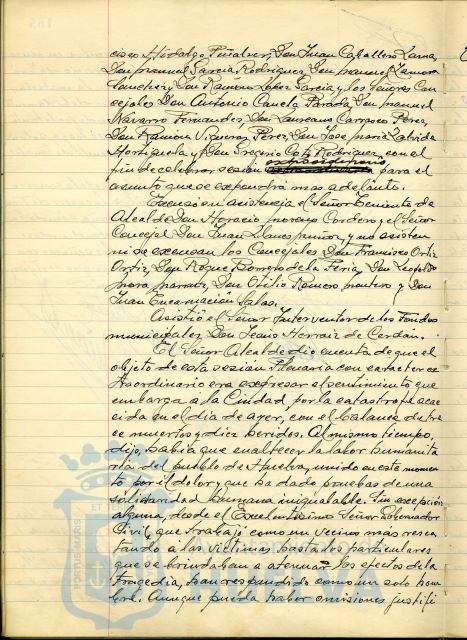 cisco Hidalgo Peñalver, Don Juan Caballero Lama,
Don Manuel García Rodríguez, Don Manuel Zamora
Sánchez y Don Ramón López García y los Señores Con
cejales Don Antonio Canela Parada, Don Manuel
Navarro Fernández, Don Laureano Carrasco Pérez,
Don Ramón Vigueras Pérez, Don José María Zalvide
Hortigüela y Don Gregorio Coto Rodríguez, con el
extraordinaria
fin de celebrar sesión para el
asunto que se expondrá más adelante.
Excusan asistencia el Señor Teniente de
Alcalde Don Horacio Moreno Cordero y el Señor
Concejal Don Juan Llanes Muñoz, y no asisten
ni se excusan los Concejales Don Francisco Ortiz
Ortiz, Don Roque Borrero de la Feria, Don Leopoldo
Mora Don Otilio Romero Montero y Don
Juan Encarnación Salas.
Asistió el Señor Interventor de los Fondos
municipales, Don Jesús Herraiz de Cerdán.
El Señor Alcalde dió cuenta de que el
objeto de esta sesión Plenaria con carácter ex
traordinario era expresar el sentimiento que
embarga a la Ciudad por la catástrofe acae
cida en el día de ayer, con el balance de tre
ce muertos y diez heridos. Al mismo tiempo,
dijo, había que enaltecer la labor humanita
ria del pueblo de Huelva, unido en este momen
to por el dolor y que ha dado pruebas de una
solidaridad humana inigualable. Sin excepción
alguna, desde el Excelentísimo Señor Gobernador
Civil, que trabajó como un vecino más resca
tando a las víctimas hasta los particulares
que se brindaban a atenuar los efectos de la
tragedia, han respondido como un solo hom
bre. Aunque pueda haber omisiones justifi